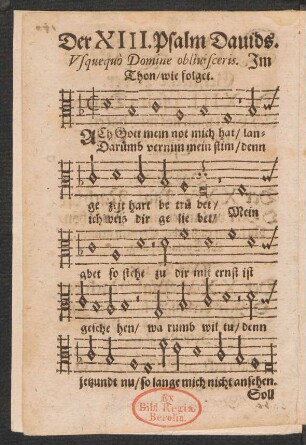 Der XIII. Psalm Dauids.
Vsquequò Domine obliuisceris. Im
Thon/wie folget.
ACh Gott mein not mich hat/ lan-
Darumb vernim mein stim/denn
ge zeit hart be trü bet/
ich weis dir ge lie bet/ Mein
gbet so stehe zu dir mit ernst ist
gesche hen/ wa rumb wil tu/ denn
jetzundt nu/so lange mich nicht ansehen.
Soll
Ex
Bibl. Regia
Berolin.